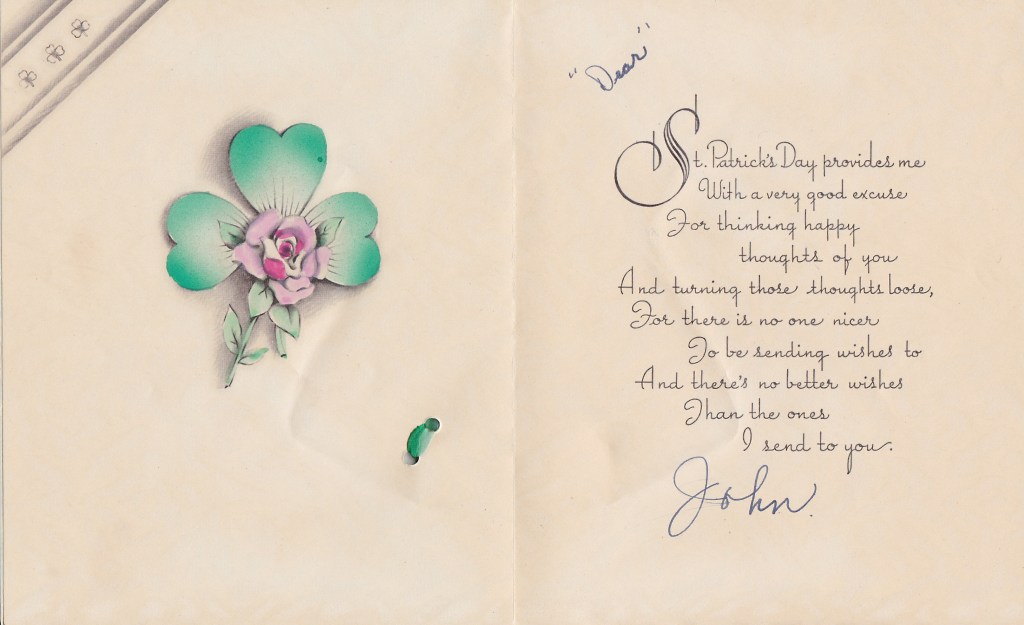 "Dear"
St. Patrick's Day provides me
With a very good excuse
For thinking happy
thoughts of you
And turning those thoughts loose,
For there is no one nicer
To be sending wishes to
And there's no better wishes
Than the ones
I send to you.
John.